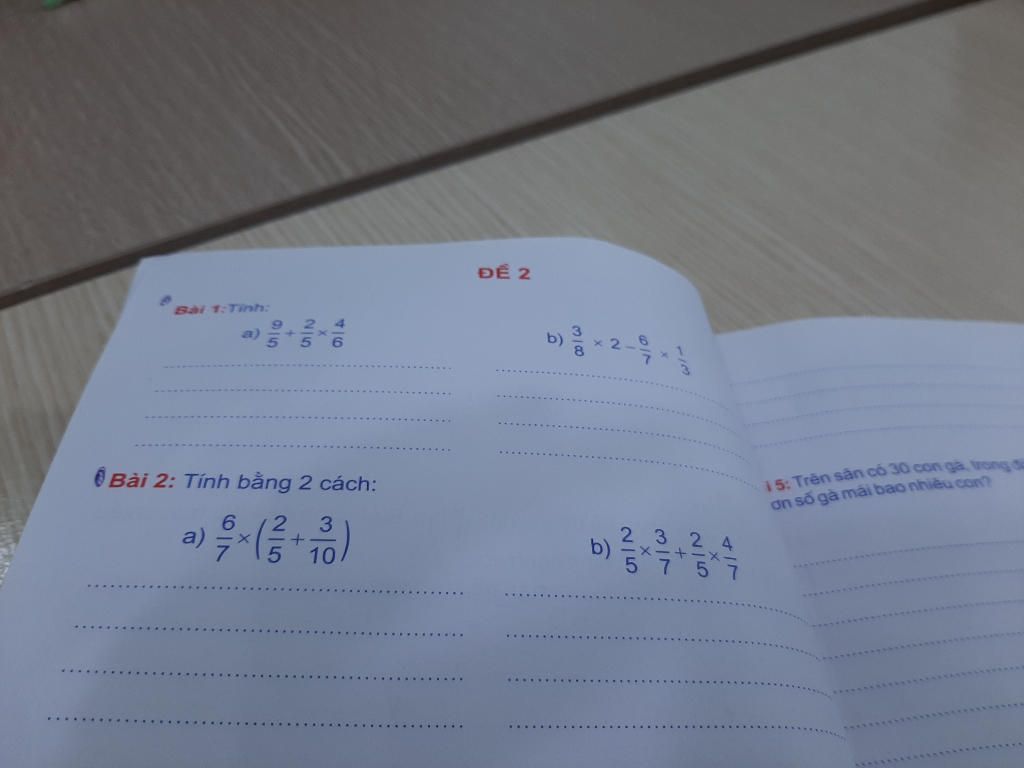 ĐỀ 2
Bài 1: Tính:
a) 9/5 + 2/5 × 4/6
b) 3/8 × 2 − 6/7 × 1/3
Bài 2: Tính bằng 2 cách:
a) 6/7 × (2/5 + 3/10)
b) 2/5 × 3/7 + 2/5 × 4/7
i 5: Trên sân có 30 con gà, trong
ơn số gà mái bao nhiêu con?